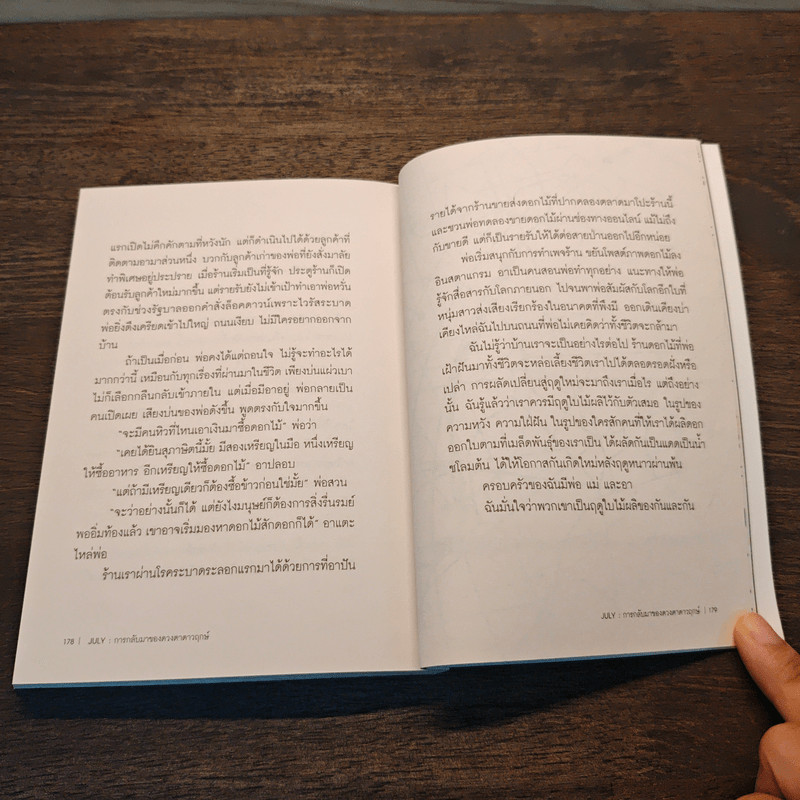 แรกเปิดไม่คึกคักตามที่หวังนัก แต่ก็ดำเนินไปได้ด้วยลูกค้าที่
ติดตามอามาส่วนหนึ่ง บวกกับลูกค้าเก่าของพ่อที่ยังสั่งมาลัย
ทำพิเศษอยู่ประปราย เมื่อร้านเริ่มเป็นที่รู้จัก ประตูร้านก็เปิด
ต้อนรับลูกค้าใหม่มากขึ้น แต่รายรับยังไม่เข้าเป้าทำเอาพ่อหวั่น
ตรงกับช่วงรัฐบาลออกคำสั่งล็อคดาวน์เพราะไวรัสระบาด
พ่อยิ่งตึงเครียดเข้าไปใหญ่ ถนนเงียบ ไม่มีใครอยากออกจาก
บ้าน
ถ้าเป็นเมื่อก่อน พ่อคงได้แต่ถอนใจ ไม่รู้จะทำอะไรได้
มากกว่านี้ เหมือนกับทุกเรื่องที่ผ่านมาในชีวิต เพียงบ่นแผ่วเบา
ไม่ก็เลือกกลืนกลับเข้าภายใน แต่เมื่อมีอาอยู่ พ่อกลายเป็น
คนเปิดเผย เสียงบ่นของพ่อดังขึ้น พูดตรงกับใจมากขึ้น
“จะมีคนหิวที่ไหนเอาเงินมาซื้อดอกไม้” พ่อว่า
“เคยได้ยินสุภาษิตนี้มั้ย มีสองเหรียญในมือ หนึ่งเหรียญ
ให้ซื้ออาหาร อีกเหรียญให้ซื้อดอกไม้” อาปลอบ
“แต่ถ้ามีเหรียญเดียวก็ต้องซื้อข้าวก่อนใช่มั้ย” พ่อสวน
“จะว่าอย่างนั้นก็ได้ แต่ยังไงมนุษย์ก็ต้องการสิ่งรื่นรมย์
พออิ่มท้องแล้ว เขาอาจเริ่มมองหาดอกไม้สักดอกก็ได้” อาแตะ
ไหล่พ่อ
ร้านเราผ่านโรคระบาดระลอกแรกมาได้ด้วยการที่อาปัน
178 | JULY : การกลับมาของดวงตาดาวฤกษ์
รายได้จากร้านขายส่งดอกไม้ที่ปากคลองตลาดมาโปะร้านนี้
และชวนพ่อทดลองขายดอกไม้ผ่านช่องทางออนไลน์ แม้ไม่ถึง
กับขายดี แต่ก็เป็นรายรับให้ได้ต่อสายป่านออกไปอีกหน่อย
พ่อเริ่มสนุกกับการทำเพจร้าน ขยันโพสต์ภาพดอกไม้ลง
อินสตาแกรม อาเป็นคนสอนพ่อทำทุกอย่าง แนะทางให้พ่อ
รู้จักสื่อสารกับโลกภายนอก ไปจนพาพ่อสัมผัสกับโลกอีกใบที่
หนุ่มสาวส่งเสียงเรียกร้องในอนาคตที่พึงมี ออกเดินเคียงบ่า
เคียงไหล่ฉันไปบนถนนที่พ่อไม่เคยคิดว่าทั้งชีวิตจะกล้ามา
ฉันไม่รู้ว่าบ้านเราจะเป็นอย่างไรต่อไป ร้านดอกไม้ที่พ่อ
เฝ้าฝันมาทั้งชีวิตจะหล่อเลี้ยงชีวิตเราไปได้ตลอดรอดฝั่งหรือ
เปล่า การผลัดเปลี่ยนสู่ฤดูใหม่จะมาถึงเราเมื่อไร แต่ถึงอย่าง
นั้น ฉันรู้แล้วว่าเราควรมีฤดูใบไม้ผลิไว้กับตัวเสมอ ในรูปของ
ความหวัง ความใฝ่ฝัน ในรูปของใครสักคนที่ให้เราได้ผลิดอก
ออกใบตามที่เมล็ดพันธุ์ของเราเป็น ได้ผลัดกันเป็นแดดเป็นน้ำ
ชโลมต้น ได้ให้โอกาสกันเกิดใหม่หลังฤดูหนาวผ่านพ้น
ครอบครัวของฉันมีพ่อ แม่ และอา
ฉันมั่นใจว่าพวกเขาเป็นฤดูใบไม้ผลิของกันและกัน
JULY : การกลับมาของดวงตาดาวฤกษ์ | 179